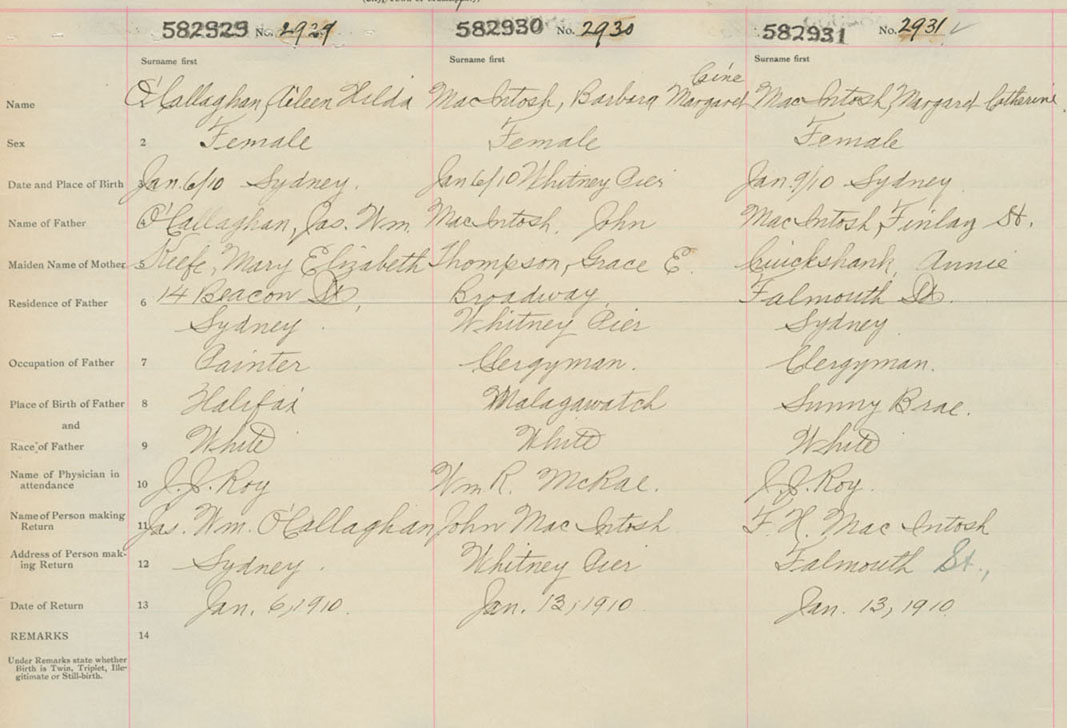 582929 No. 2929 582930 No. 2930 582931 No. 2931
Surname first Surname first Surname first
Name O'Callaghan, Aileen Hilda MacIntosh, Barbara Margaret MacIntosh, Margaret Catherine
Sex 2 Female Female Female
Date and Place of Birth 3 Jan. 6/10 Sydney. Jan 6/10 Whitney Pier Jan. 9/10 Sydney
Name of Father 4 O'Callaghan, Jas. Wm. MacIntosh, John MacIntosh, Finlay
Maiden Name of Mother 5 Keefe, Mary Elizabeth Thompson, Grace E. Cruickshank, Annie
Residence of Father 6 14 Beacon St, Broadway, Falmouth St.
Sydney. Whitney Pier Sydney
Occupation of Father 7 Painter Clergyman. Clergyman.
Place of Birth of Father 8 Halifax Malagawatch Sunny Brae.
and
Race of Father 9 White White White
Name of Physician in
attendance 10 J.J. Roy Wm R. McRae. J.J. Roy.
Name of Person making
Return 11 Jas. Wm. O'Callaghan John MacIntosh F. H. MacIntosh
Address of Person mak-
ing Return 12 Sydney. Whitney Pier Falmouth St.,
Date of Return 13 Jan. 6, 1910. Jan. 13, 1910 Jan. 13, 1910
REMARKS 14
Under Remarks state whether
Birth is Twin, Triplet, Ille-
gitimate or Still-birth.